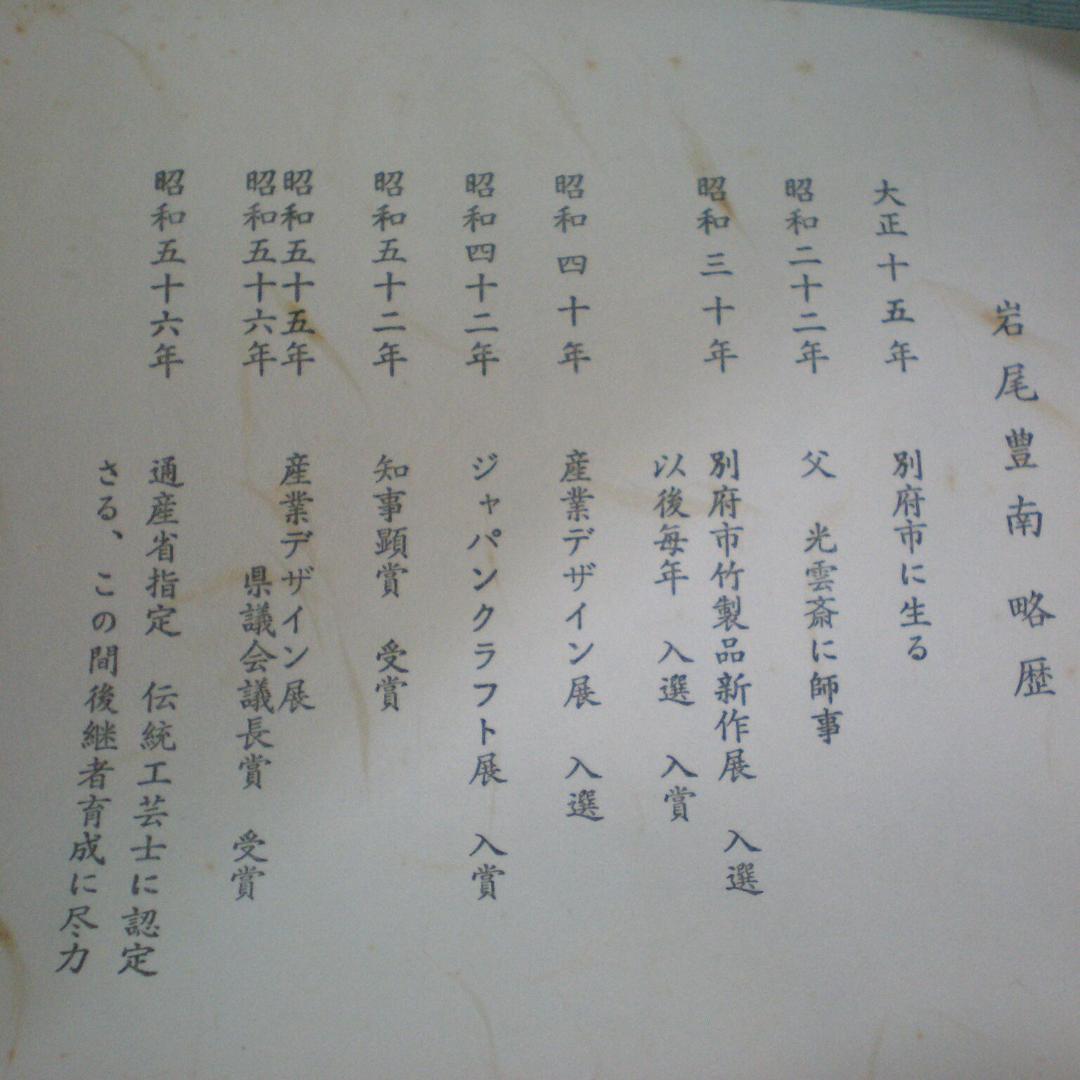 岩尾豊南 略歴
大正十五年 別府市に生る
昭和二十二年 父 光雲斎に師事
昭和三十年 別府市竹製品新作展 入選
以後毎年 入選 入賞
昭和四十年 産業デザイン展 入選
昭和四十二年 ジャパンクラフト展 入賞
昭和五十二年 知事顕賞 受賞
昭和五十五年 産業デザイン展
昭和五十六年 県議会議長賞 受賞
昭和五十六年 通産省指定 伝統工芸士に認定
さる、この間後継者育成に尽力